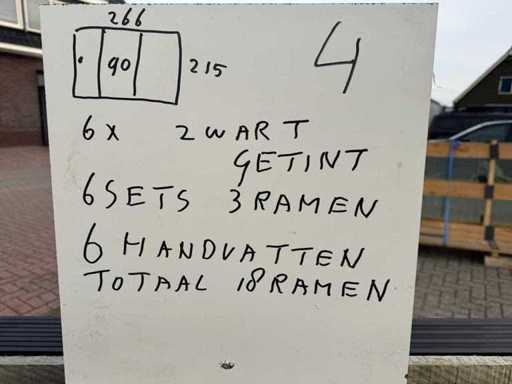 266
4
90
215
6X ZWART
GETINT
6 SETS 3 RAMEN
6 HANDVATTEN
TOTAAL 18 RAMEN